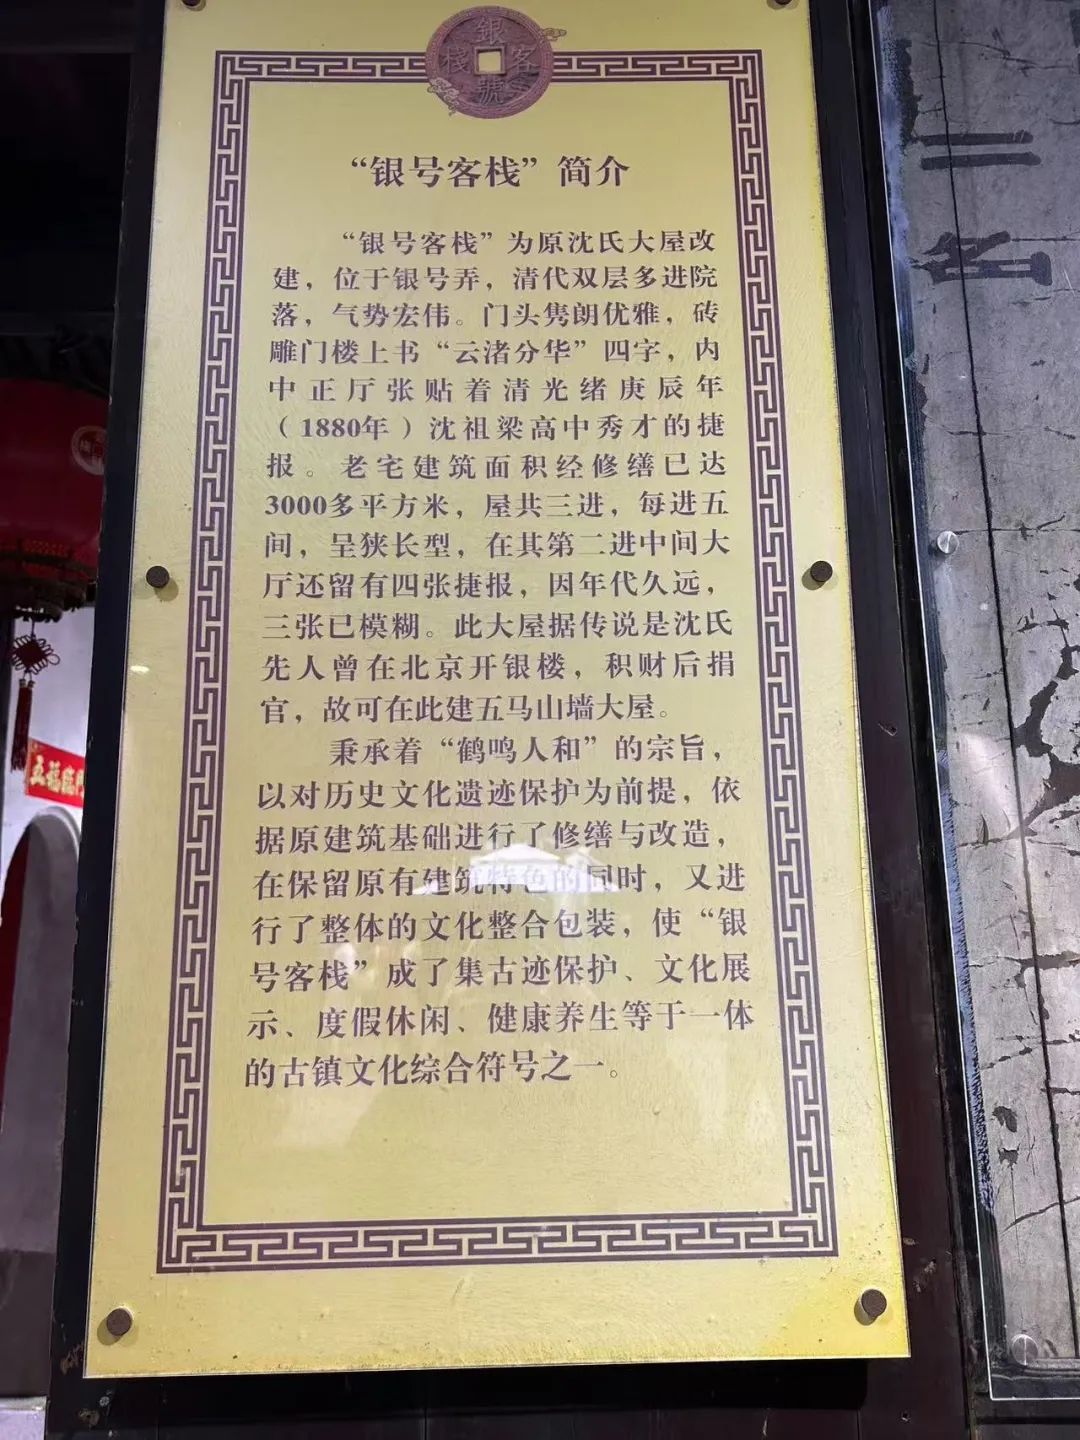 銀
客
棧
號
“银号客栈”简介
“银号客栈”为原沈氏大屋改
建，位于银号弄，清代双层多进院
落，气势宏伟。门头隽朗优雅，砖
雕门楼上书“云渚分华”四字，内
中正厅张贴着清光绪庚辰年
（1880年）沈祖梁高中秀才的捷
报。老宅建筑面积经修缮已达
3000多平方米，屋共三进，每进五
间，呈狭长型，在其第二进中间大
厅还留有四张捷报，因年代久远，
三张已模糊。此大屋据传说是沈氏
先人曾在北京开银楼，积财后捐
官，故可在此建五马山墙大屋。
秉承着“鹤鸣人和”的宗旨，
以对历史文化遗迹保护为前提，依
据原建筑基础进行了修缮与改造，
在保留原有建筑特色的同时，又进
行了整体的文化整合包装，使“银
号客栈”成了集古迹保护、文化展
示、度假休闲、健康养生等于一体
的古镇文化综合符号之一。
五福臨門